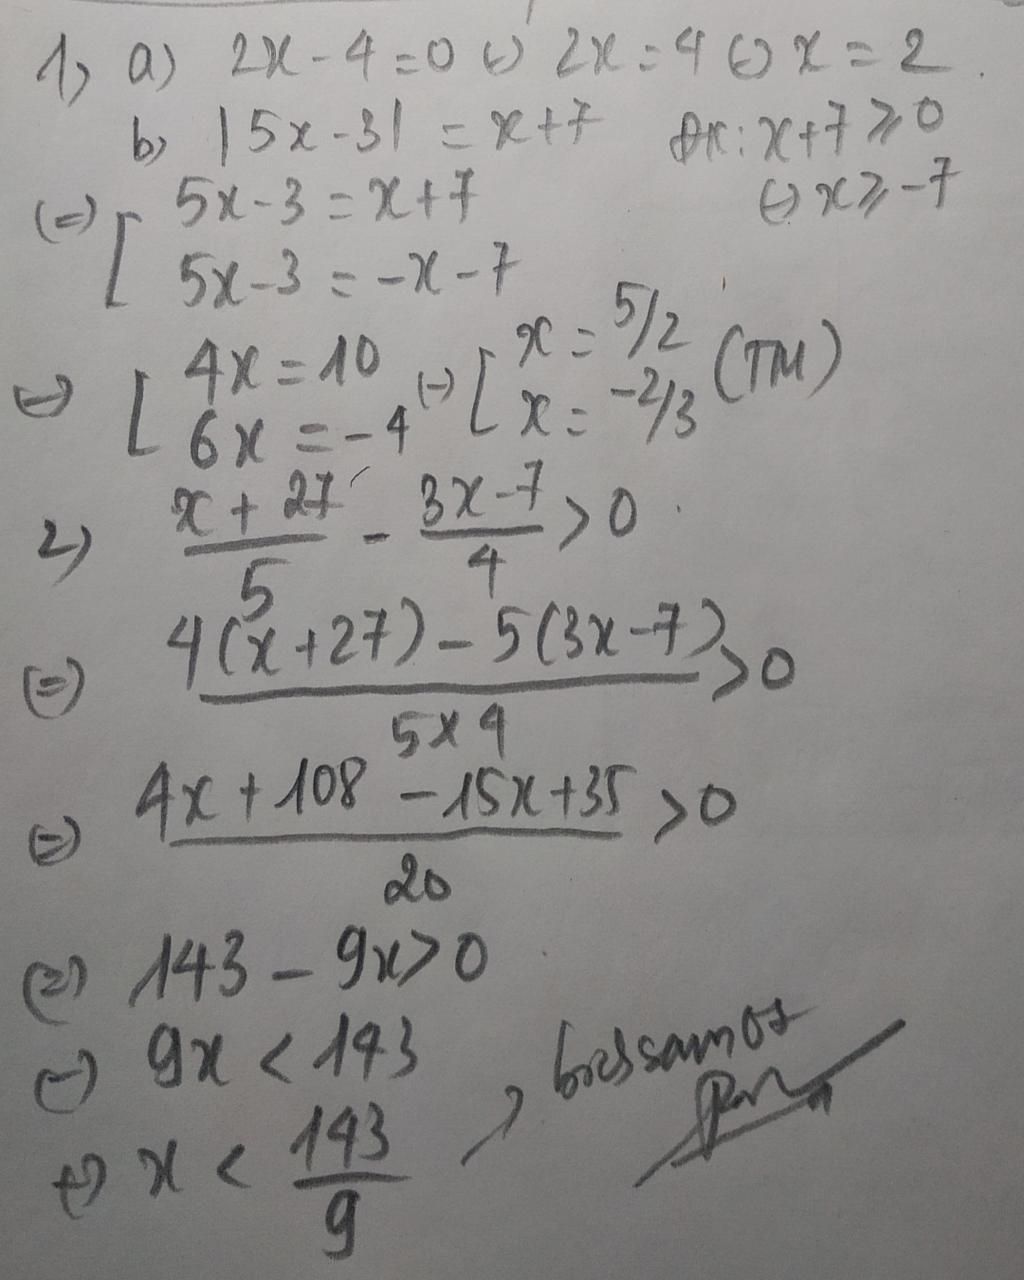 1, a) 2x - 4 = 0 (=) 2x = 4 (=) x = 2.
b, |5x - 3| = x + 7 ĐK: x + 7 ≥ 0
(=) x ≥ -7
(=) [ 5x - 3 = x + 7
5x - 3 = -x - 7
(=) [ 4x = 10 (=) [ x = 5/2 (TM)
6x = -4 x = -2/3
2) (x + 27)/5 - (3x - 7)/4 > 0
(=) (4(x + 27) - 5(3x - 7))/(5 x 4) > 0
(=) (4x + 108 - 15x + 35)/20 > 0
(=) 143 - 9x > 0
(=) 9x < 143
(=) x < 143/9